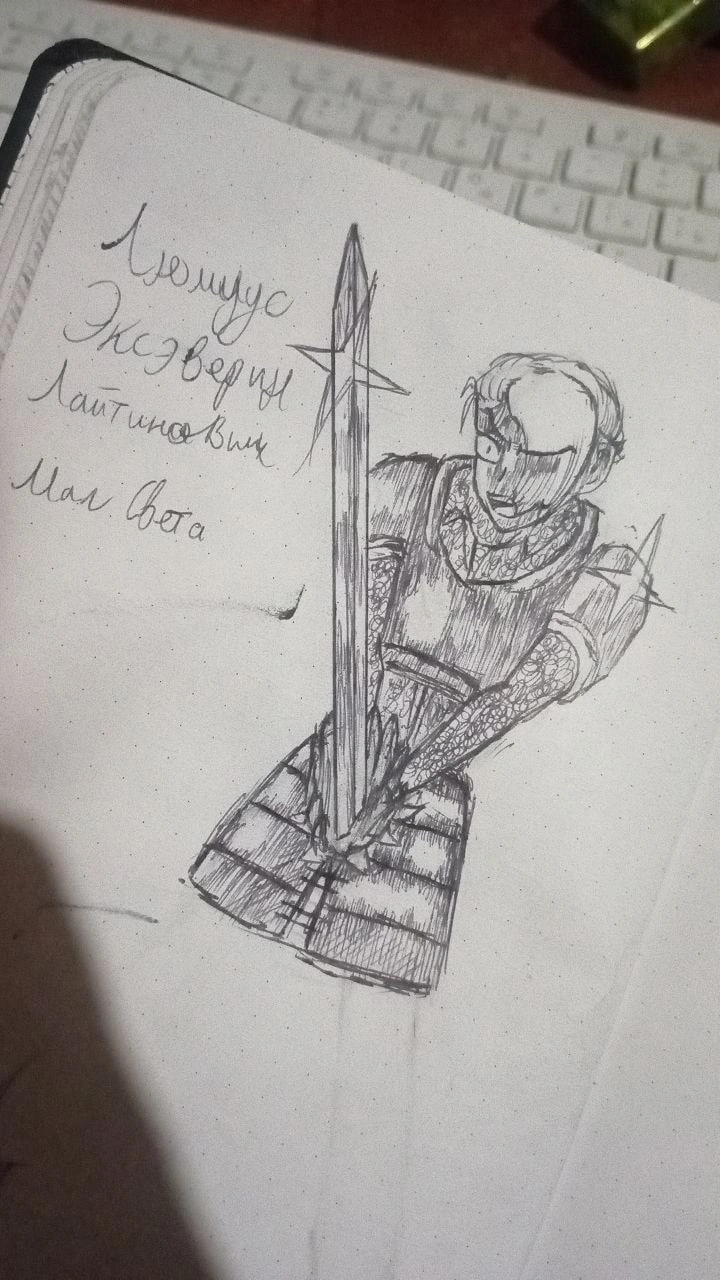 Люмуус
Эксэверин
Лайтинович
Маг Света